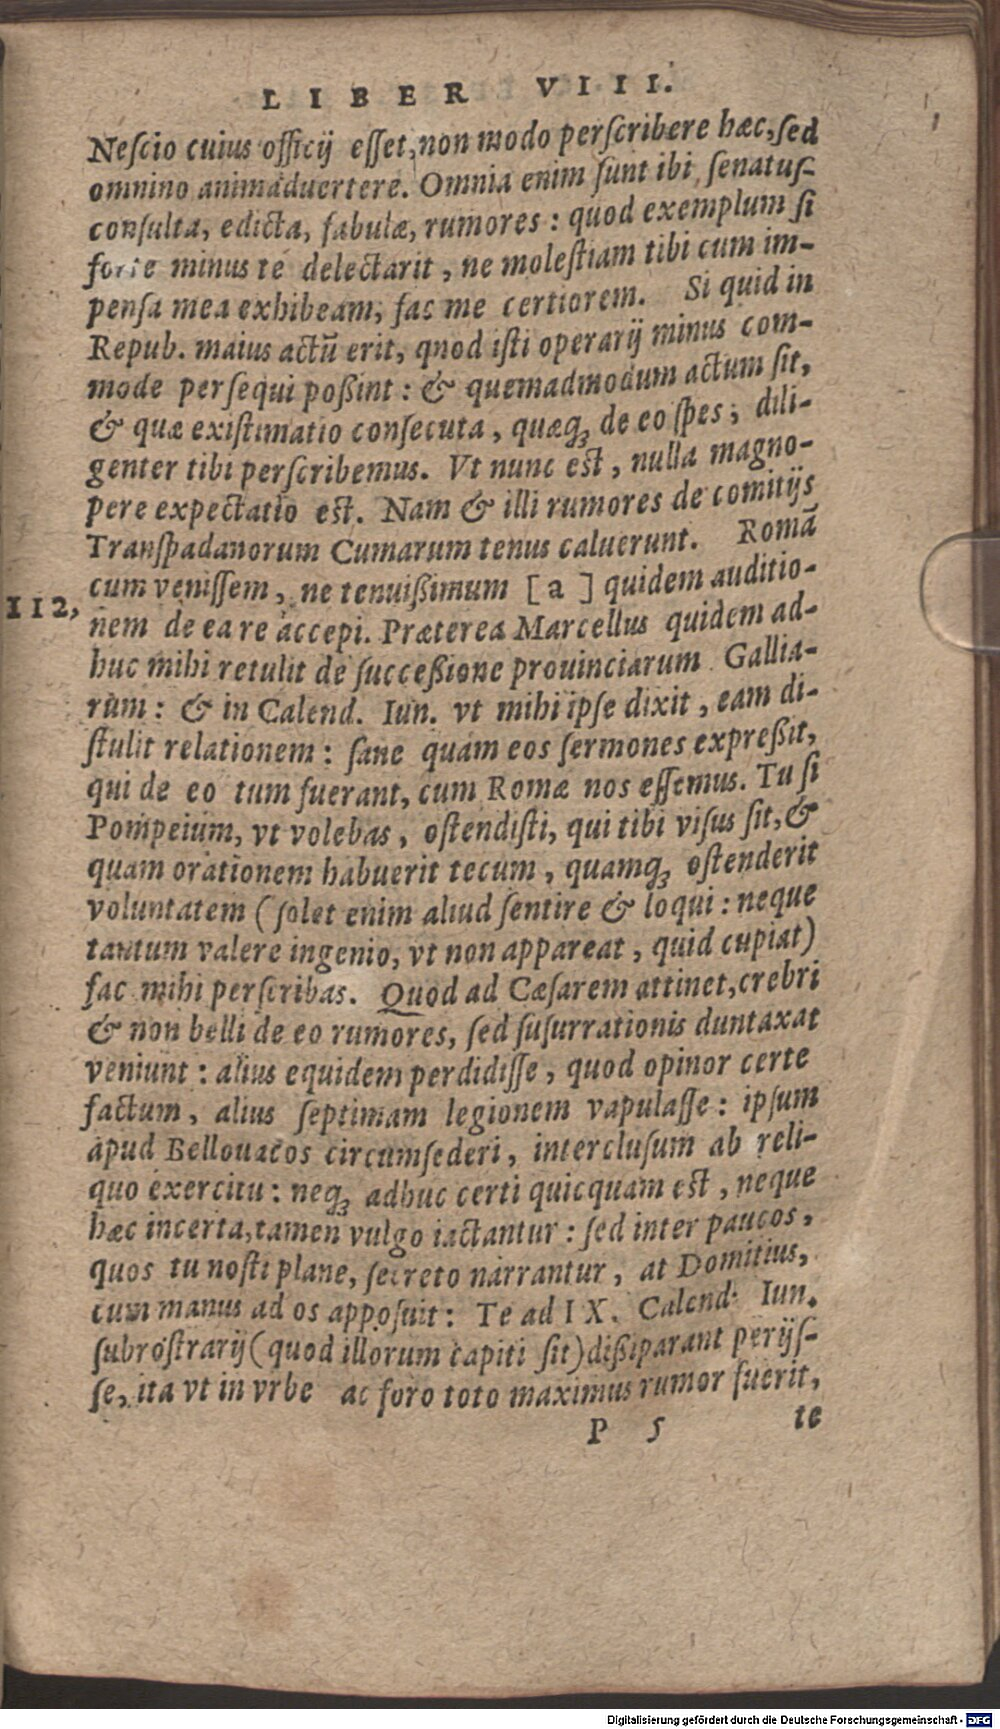 LIBER VIII.
Neſcio cuius officij eſſet, non modo perſcribere hæc, ſed
omnino animaduertere. Omnia enim ſunt ibi ſenatuſ-
conſulta, edicta, fabulæ, rumores: quod exemplum ſi
forte minus te delectarit, ne moleſtiam tibi cum im-
penſa mea exhibeam, fac me certiorem. Si quid in
Repub. maius actũ erit, quod iſti operarij minus com-
mode perſequi poßint: & quemadmodum actum ſit,
& quæ exiſtimatio conſecuta, quæq; de eo ſpes; dili-
genter tibi perſcribemus. Vt nunc eſt, nulla magno-
pere expectatio eſt. Nam & illi rumores de comitijs
Tranſpadanorum Cumarum tenus caluerunt. Romã
cum veniſſem, ne tenuißimum [a] quidem auditio-
112,
nem de ea re accepi. Præterea Marcellus quidem ad-
huc mihi retulit de ſucceßione prouinciarum Gallia-
rum: & in Calend. Iun. vt mihi ipſe dixit, eam di-
ſtulit relationem: ſane quam eos ſermones expreßit,
qui de eo tum fuerant, cum Romæ nos eſſemus. Tu ſi
Pompeium, vt volebas, oſtendiſti, qui tibi viſus ſit, &
quam orationem habuerit tecum, quamq; oſtenderit
voluntatem (ſolet enim aliud ſentire & loqui: neque
tantum valere ingenio, vt non appareat, quid cupiat)
fac mihi perſcribas. Quod ad Cæſarem attinet, crebri
& non belli de eo rumores, ſed ſuſurrationis duntaxat
veniunt: alius equidem perdidiſſe, quod opinor certe
factum, alius ſeptimam legionem vapulaſſe: ipſum
apud Bellouacos circumſederi, interclusum ab reli-
quo exercitu: neq; adhuc certi quicquam eſt, neque
hæc incerta, tamen vulgo iactantur: ſed inter paucos,
quos tu noſti plane, ſecreto narrantur, at Domitius,
cum manus ad os appoſuit: Te ad IX. Calend. Iun.
ſubroſtrarij (quod illorum capiti ſit) dißiparant perijſ-
ſe, ita vt in vrbe ac foro toto maximus rumor fuerit,
P 5 te
Digitalisierung gefördert durch die Deutsche Forschungsgemeinschaft - DFG